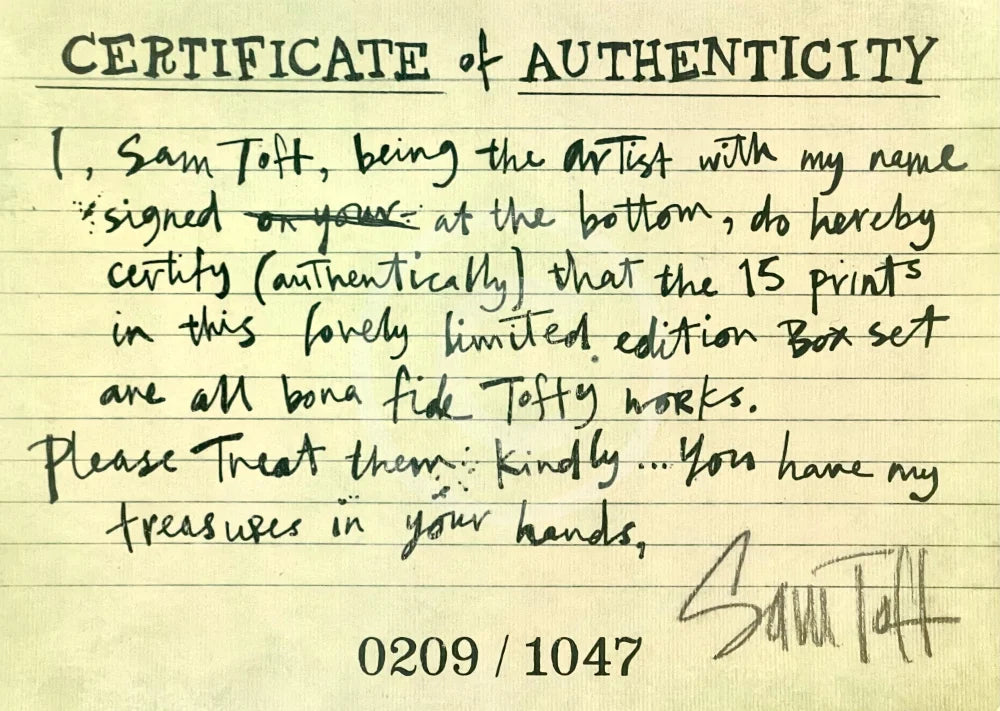 CERTIFICATE of AUTHENTICITY
I, Sam Toft, being the artist with my name
signed on your at the bottom, do hereby
certify (authentically) that the 15 prints
in this lovely limited edition Box set
are all bona fide Tofty works.
Please Treat them kindly... You have my
treasures in your hands,
Sam Toft
0209 / 1047